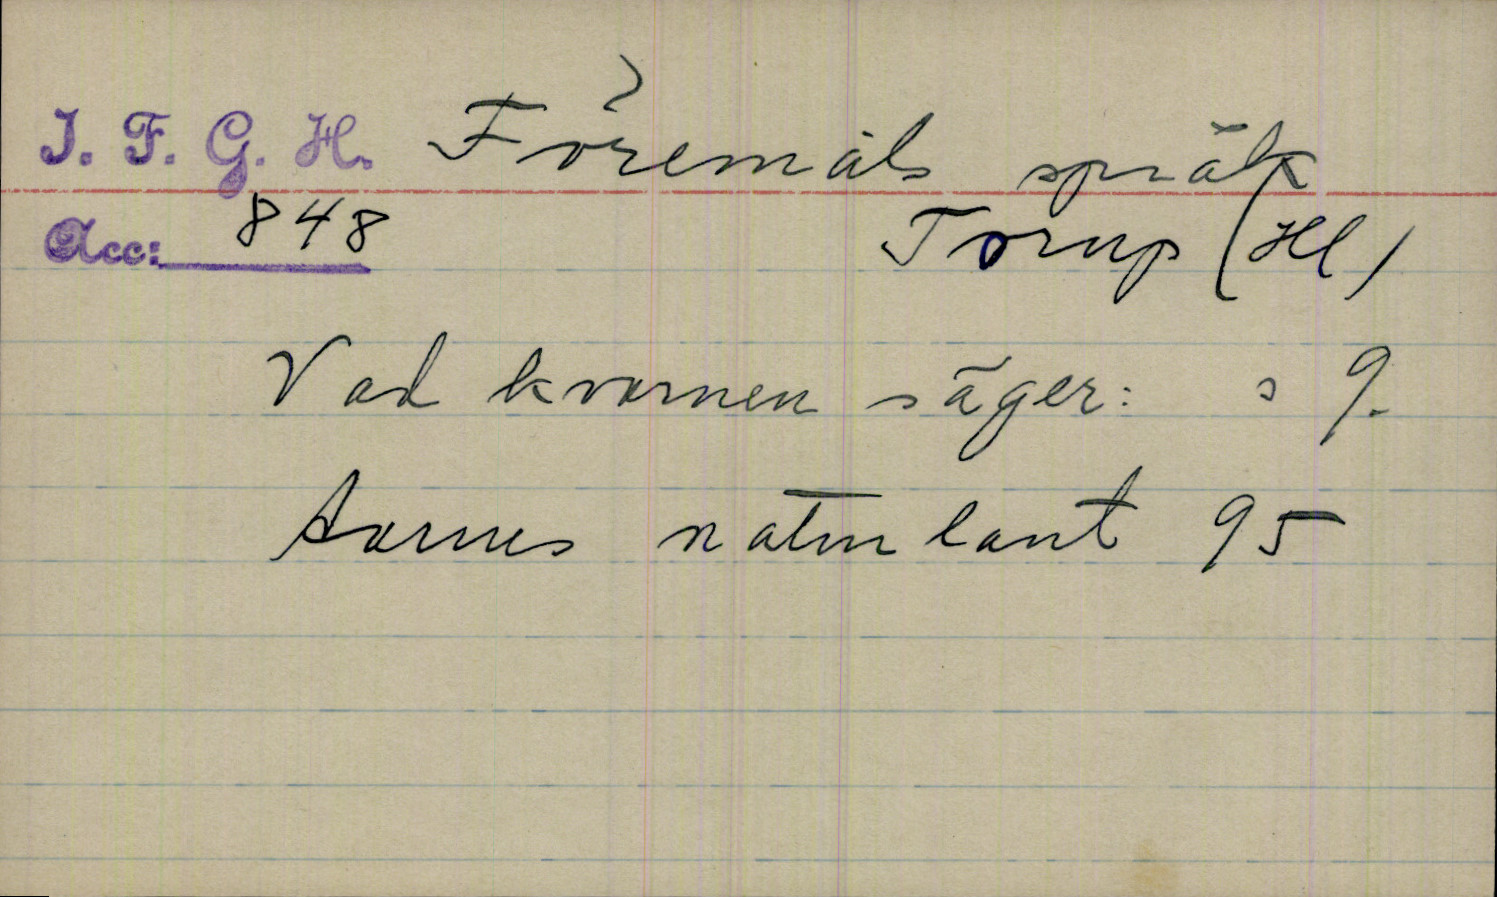 I. F. G. H. Föremåls språk
Acc: 848 Torup (Hl)
Vad kvarnen säger: s 9.
Aarnes naturlaut 95